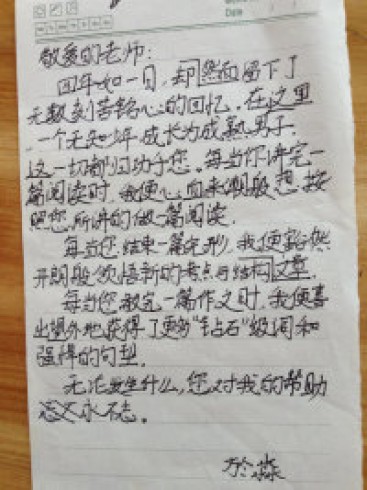 敬爱的老师:
四年如一日,却然而留下了
无数刻苦铭心的回忆.在这里
一个无知少年成长为成熟男子.
这一切都归功于您.每当你讲完一
篇阅读时,我便心血来潮般想按
照您所讲的做一篇阅读.
每当您结束一篇完形,我便豁然
开朗般领悟新的考点与结构文章.
每当您教完一篇作文时,我便喜
出望外地获得了更多"钻石"级词和
强悍的句型.
无论发生什么,您对我的帮助
念念永不忘.